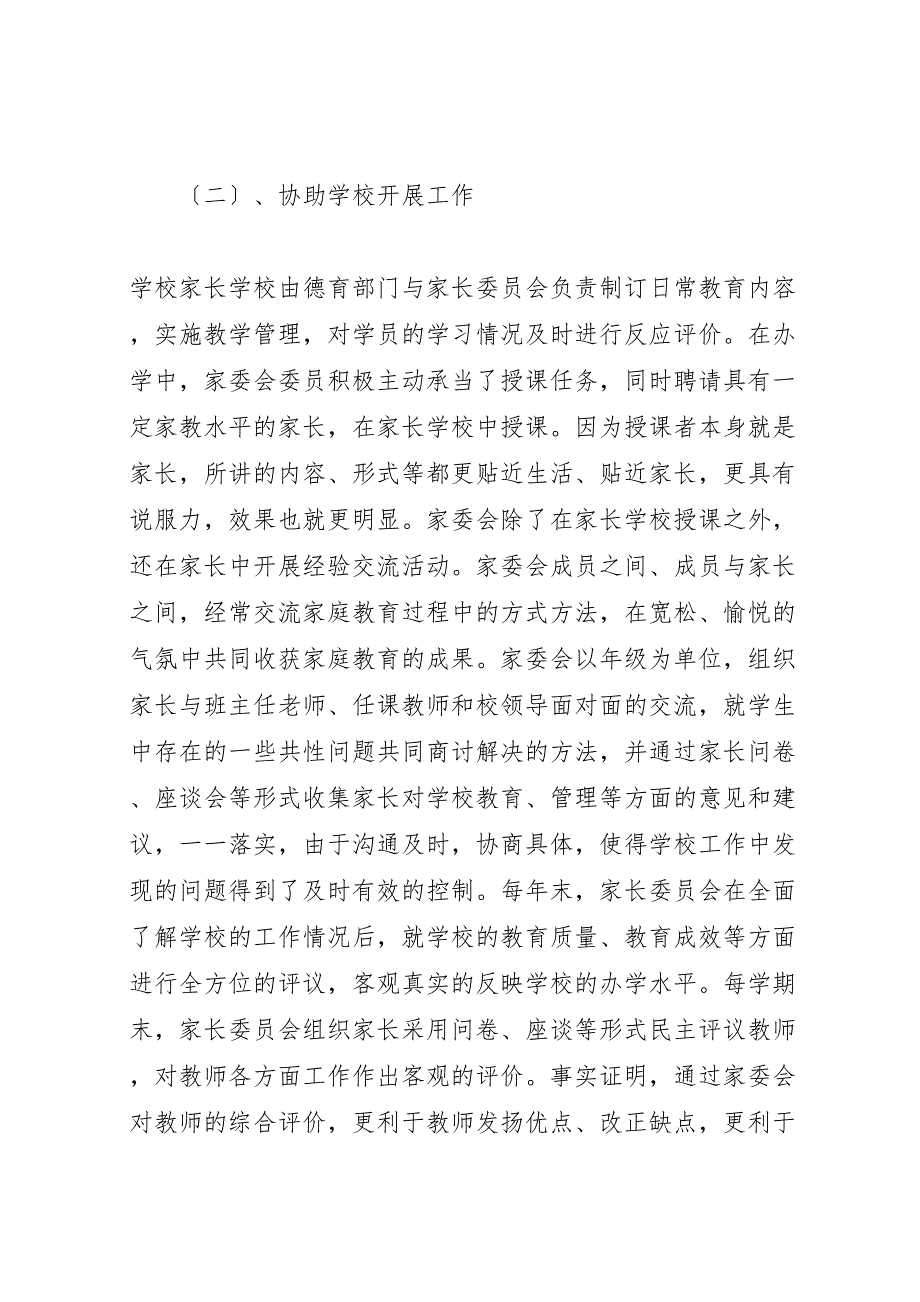 〔二〕、协助学校开展工作
学校家长学校由德育部门与家长委员会负责制订日常教育内容
，实施教学管理，对学员的学习情况及时进行反应评价。在办
学中，家委会委员积极主动承当了授课任务，同时聘请具有一
定家教水平的家长，在家长学校中授课。因为授课者本身就是
家长，所讲的内容、形式等都更贴近生活、贴近家长，更具有
说服力，效果也就更明显。家委会除了在家长学校授课之外，
还在家长中开展经验交流活动。家委会成员之间、成员与家长
之间，经常交流家庭教育过程中的方式方法，在宽松、愉悦的
气氛中共同收获家庭教育的成果。家委会以年级为单位，组织
家长与班主任老师、任课教师和校领导面对面的交流，就学生
中存在的一些共性问题共同商讨解决的方法，并通过家长问卷
、座谈会等形式收集家长对学校教育、管理等方面的意见和建
议，一一落实，由于沟通及时，协商具体，使得学校工作中发
现的问题得到了及时有效的控制。每年末，家长委员会在全面
了解学校的工作情况后，就学校的教育质量、教育成效等方面
进行全方位的评议，客观真实的反映学校的办学水平。每学期
末，家长委员会组织家长采用问卷、座谈等形式民主评议教师
，对教师各方面工作作出客观的评价。事实证明，通过家委会
对教师的综合评价，更利于教师发扬优点、改正缺点，更利于